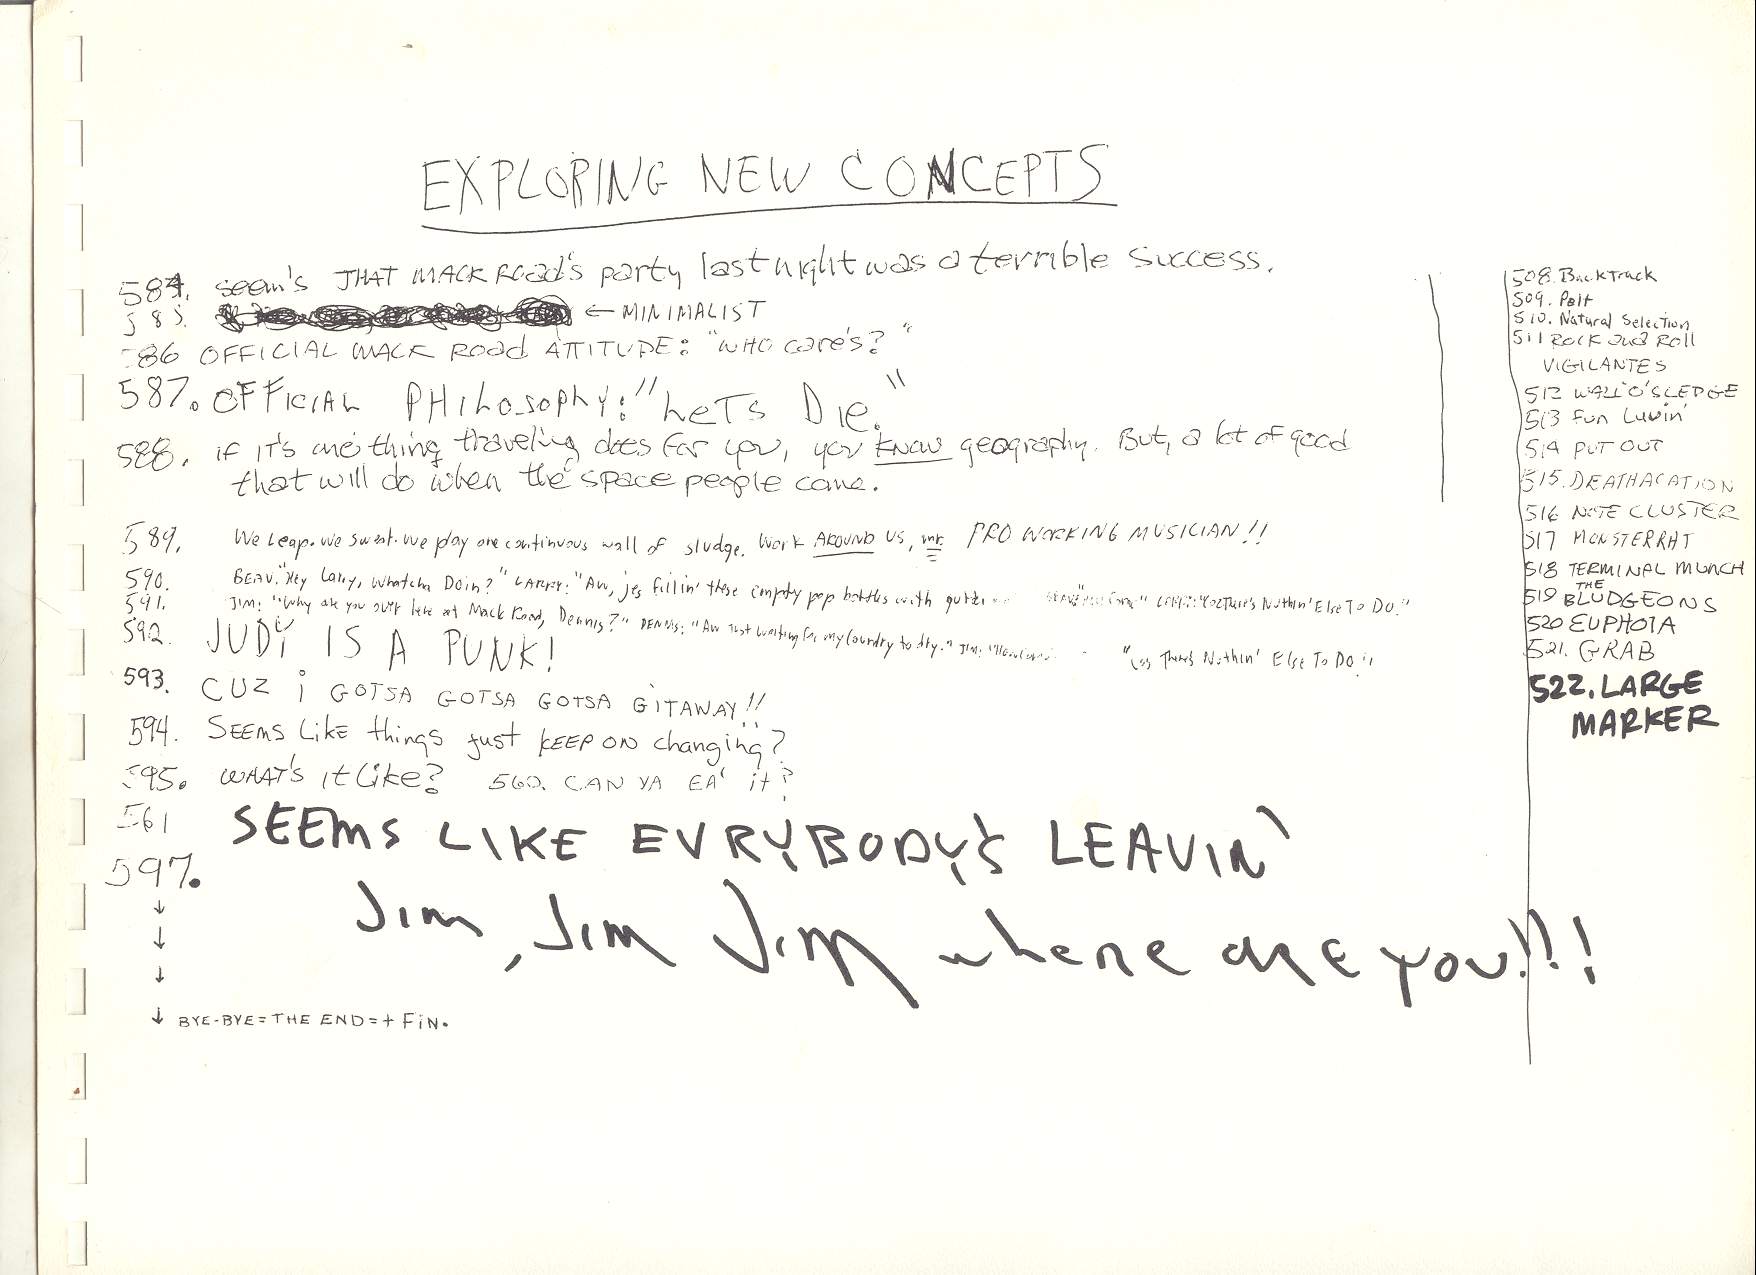 EXPLORING NEW CONCEPTS
584. seem's THAT MACK ROAD's party last night was a terrible success.
585. ← MINIMALIST
586 OFFICIAL MACK ROAD ATTITUDE: "WHO care's?"
587. OFFICIAL PHILOSOPHY: "LET'S DIE."
588. if it's one thing traveling does for you, you KNOW geography. But, a lot of good
that will do when the space people come.
589. We leap. We sweat. We play one continuous wall of sludge. Work AROUND US, mr. PRO WORKING MUSICIAN!!
590. BEAV: "Hey Larry, whatcha Doin?" LARRY: "Aw, jes fillin' these empty pop bottles with Nuthin' Else To Do."
591. JIM: "Why are you over here at Mack Road, Dennis?" DENNIS: "Aw Just waiting for my laundry to dry." JIM: "Cos There's Nuthin' Else To Do!!
592. JUDY IS A PUNK!
593. CUZ i GOTSA GOTSA GOTSA GITAWAY!!
594. SEEMS LIKE things just KEEP ON changing?
595. WHAT'S it like? 560. CAN YA EA' it?
561 SEEMS LIKE EVRYBODY'S LEAVIN'
597. Jim, Jim Jim where are you!!!
↓
↓
↓
↓ BYE-BYE = THE END = + FIN.
508. BackTrack
509. Pelt
510. Natural Selection
511 Rock and Roll
VIGILANTES
512 WALLO'SLEDGE
513 Fun Luvin'
514 PUT OUT
515. DEATHACATION
516 NOTE CLUSTER
517 MONSTERRAT
518 TERMINAL MUNCH
519 THE BLUDGEONS
520 EUPHOIA
521. GRAB
522. LARGE
MARKER